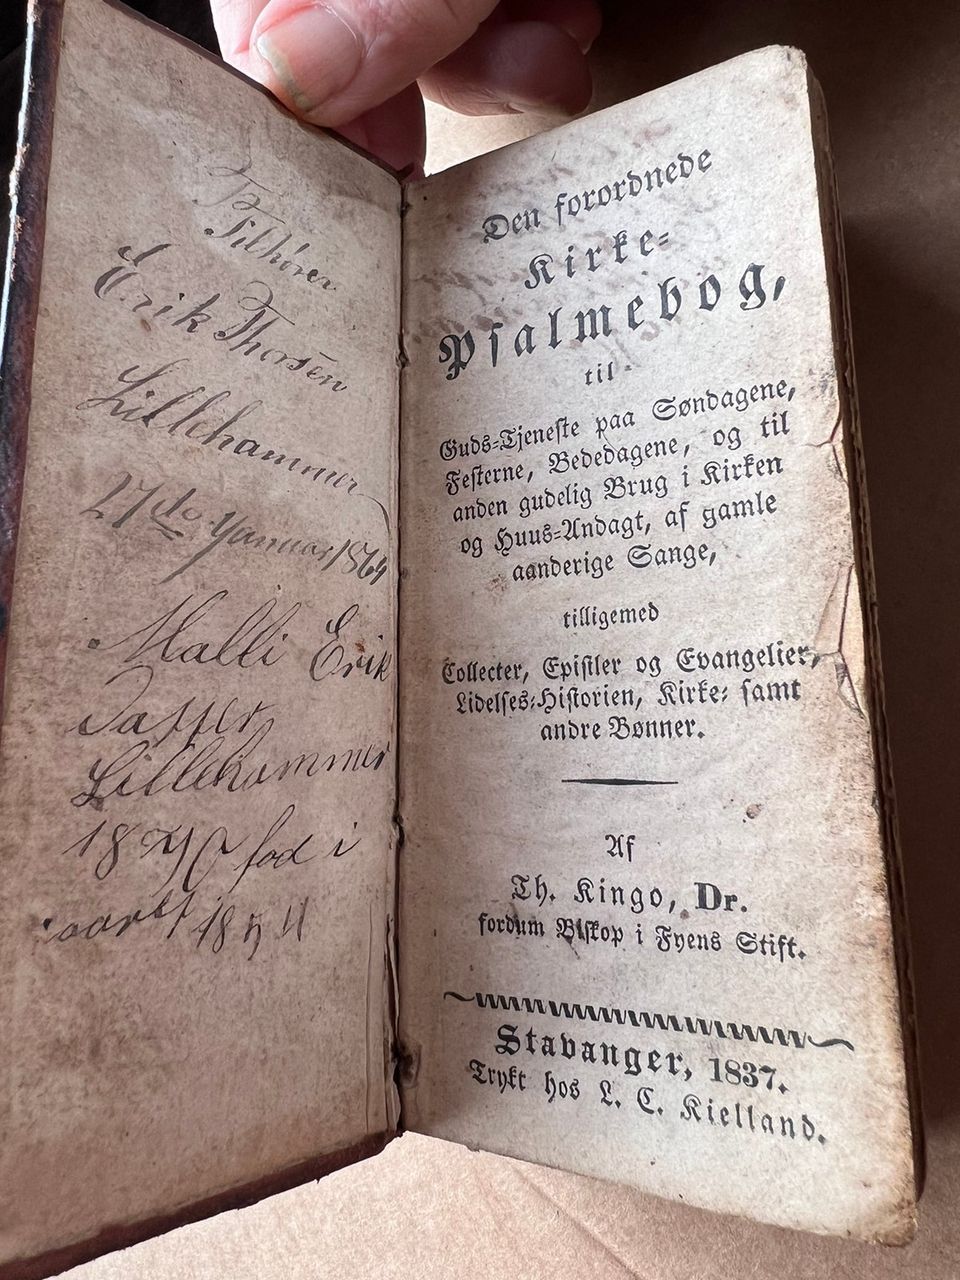 Tilhører
Erik Thorsen
Lillehammer
27de Januar 1864
Malli Erik
Lillehammer
fød i
aaret 1854
Den forordnede
Kirke-
Psalmebog,
til
Guds-Tjeneste paa Søndagene,
Festerne, Bededagene, og til
anden gudelig Brug i Kirken
og Huus-Andagt, af gamle
aanderige Sange,
tilligemed
Collecter, Epistler og Evangelier,
Lidelses-Historien, Kirke- samt
andre Bønner.
Af
Th. Kingo, Dr.
fordum Biskop i Fyens Stift.
Stavanger, 1837.
Trykt hos L. C. Kielland.